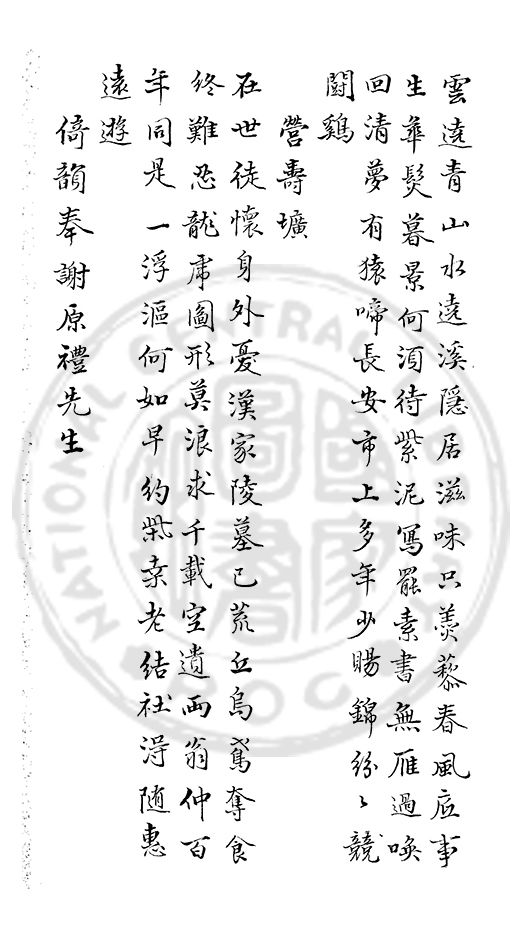 雲遶青山水遶溪隱居滋味只羮藜春風底事
生華髩暮景何湏待紫泥寫罷素書無雁過喚
回清夢有猿啼長安市上多年少賜錦紛〻競
鬪鷄
營壽壙
在世徒懷身外憂漢家陵墓已荒丘烏鳶奪食
終難忍龍虎圖形莫浪求千載空遺兩翁仲百
年同是一浮漚何如早約柴桒老結社淂随惠
遠遊
倚韻奉謝原禮先生
NATIONAL CENTRAL LIBRARY
R.O.C.